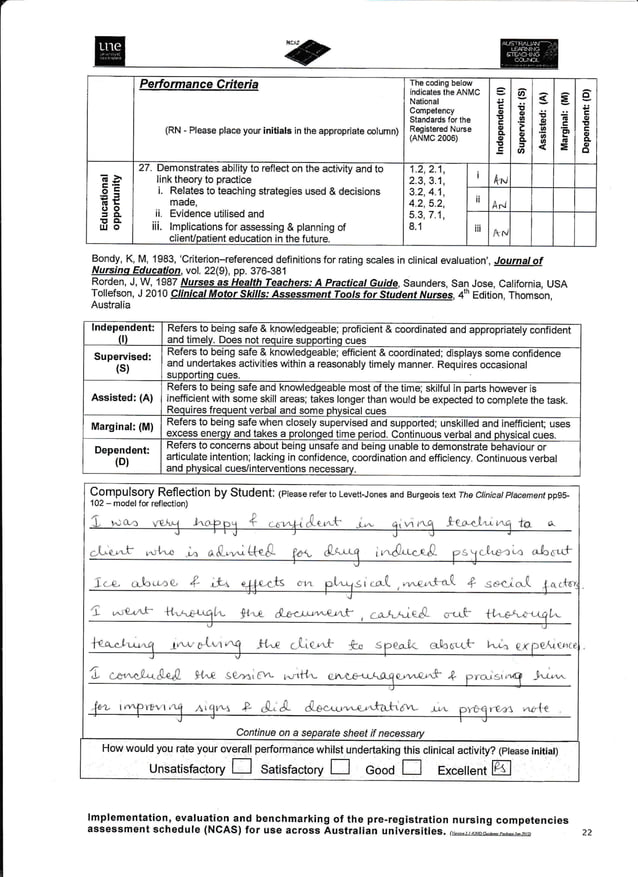 une
NCAS
AUSTRALIAN
LEARNING
&TEACHING
COUNCIL
Performance Criteria
(RN - Please place your initials in the appropriate column)
The coding below
indicates the ANMC
National
Competency
Standards for the
Registered Nurse
(ANMC 2006)
Independent: (I)
Supervised: (S)
Assisted: (A)
Marginal: (M)
Dependent: (D)
Educational
opportunity
27. Demonstrates ability to reflect on the activity and to
link theory to practice
i. Relates to teaching strategies used & decisions
made,
ii. Evidence utilised and
iii. Implications for assessing & planning of
client/patient education in the future.
1.2, 2.1,
2.3, 3.1,
3.2, 4.1,
4.2, 5.2,
5.3, 7.1,
8.1
i AN
ii AN
iii AN
Bondy, K, M, 1983, 'Criterion–referenced definitions for rating scales in clinical evaluation', Journal of
Nursing Education, vol. 22(9), pp. 376-381
Rorden, J, W, 1987 Nurses as Health Teachers: A Practical Guide, Saunders, San Jose, California, USA
Tollefson, J 2010 Clinical Motor Skills: Assessment Tools for Student Nurses, 4th Edition, Thomson,
Australia
Independent:
(I)
Refers to being safe & knowledgeable; proficient & coordinated and appropriately confident
and timely. Does not require supporting cues
Supervised:
(S)
Refers to being safe & knowledgeable; efficient & coordinated; displays some confidence
and undertakes activities within a reasonably timely manner. Requires occasional
supporting cues.
Assisted: (A)
Refers to being safe and knowledgeable most of the time; skilful in parts however is
inefficient with some skill areas; takes longer than would be expected to complete the task.
Requires frequent verbal and some physical cues
Marginal: (M)
Refers to being safe when closely supervised and supported; unskilled and inefficient; uses
excess energy and takes a prolonged time period. Continuous verbal and physical cues.
Dependent:
(D)
Refers to concerns about being unsafe and being unable to demonstrate behaviour or
articulate intention; lacking in confidence, coordination and efficiency. Continuous verbal
and physical cues/interventions necessary.
Compulsory Reflection by Student: (Please refer to Levett-Jones and Burgeois text The Clinical Placement pp95-
102 – model for reflection)
I was very happy & confident in giving teaching to a
client who is admitted for drug induced psychosis about
Ice abuse & its effects on physical, mental & social factors.
I went through the document, carried out thorough
teaching involving the client to speak about his experiences.
I concluded the session with encouragement & praising him
for improving signs & did documentation in progress note.
Continue on a separate sheet if necessary
How would you rate your overall performance whilst undertaking this clinical activity? (Please initial)
Unsatisfactory Satisfactory Good Excellent RS
Implementation, evaluation and benchmarking of the pre-registration nursing competencies
assessment schedule (NCAS) for use across Australian universities.
22